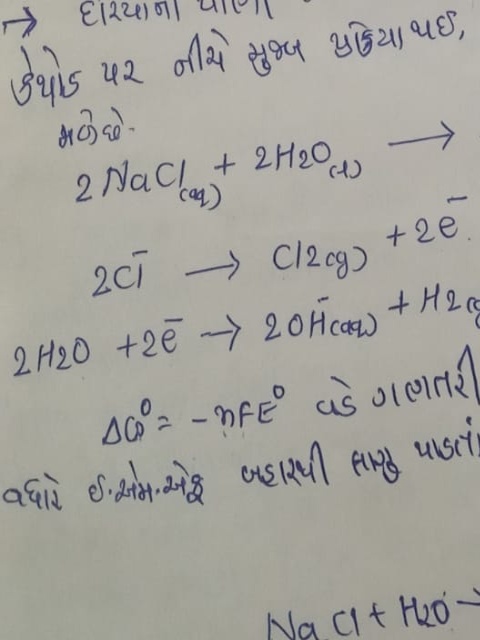 → દરિયાના પાણી
કેથોડ પર નીચે મુજબ પ્રક્રિયા થઈ,
મળે છે.
2NaCl(aq) + 2H2O(l) →
2Cl⁻ → Cl2(g) + 2e⁻
2H2O + 2e⁻ → 2OH⁻(aq) + H2(g
ΔG⁰ = -nFE⁰ વડે ગણતરી
વધારે ઈ.એમ.એફ બહારથી લાગુ પાડતાં
NaCl + H2O →